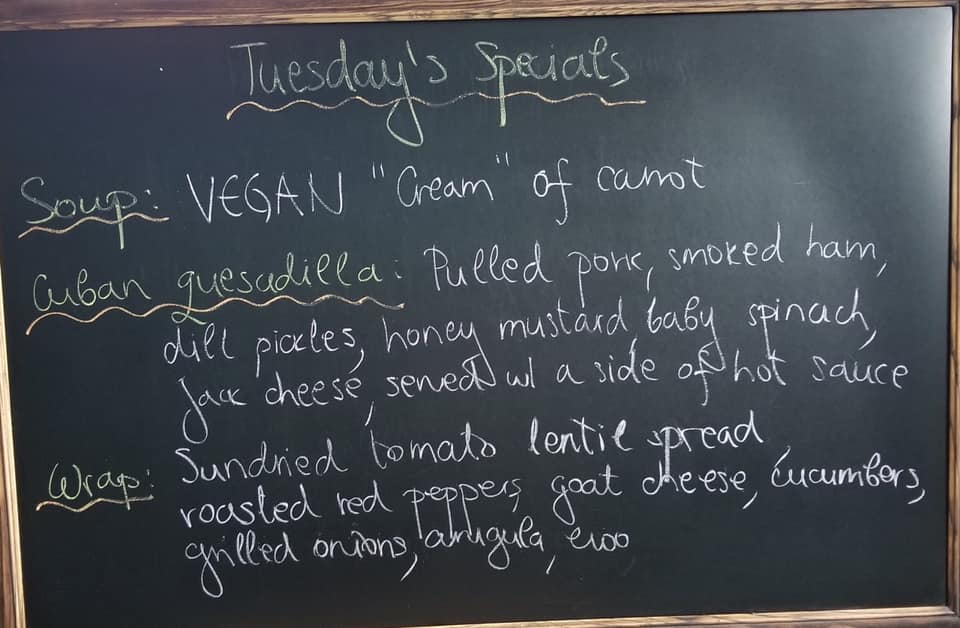 Tuesday's Specials
Soup: VEGAN "Cream" of carrot
Cuban quesadilla: Pulled pork, smoked ham,
dill pickles, honey mustard, baby spinach,
Jack cheese, served w/ a side of hot sauce
Wrap: Sundried tomato lentil spread
roasted red peppers, goat cheese, cucumbers,
grilled onions, arugula, evoo